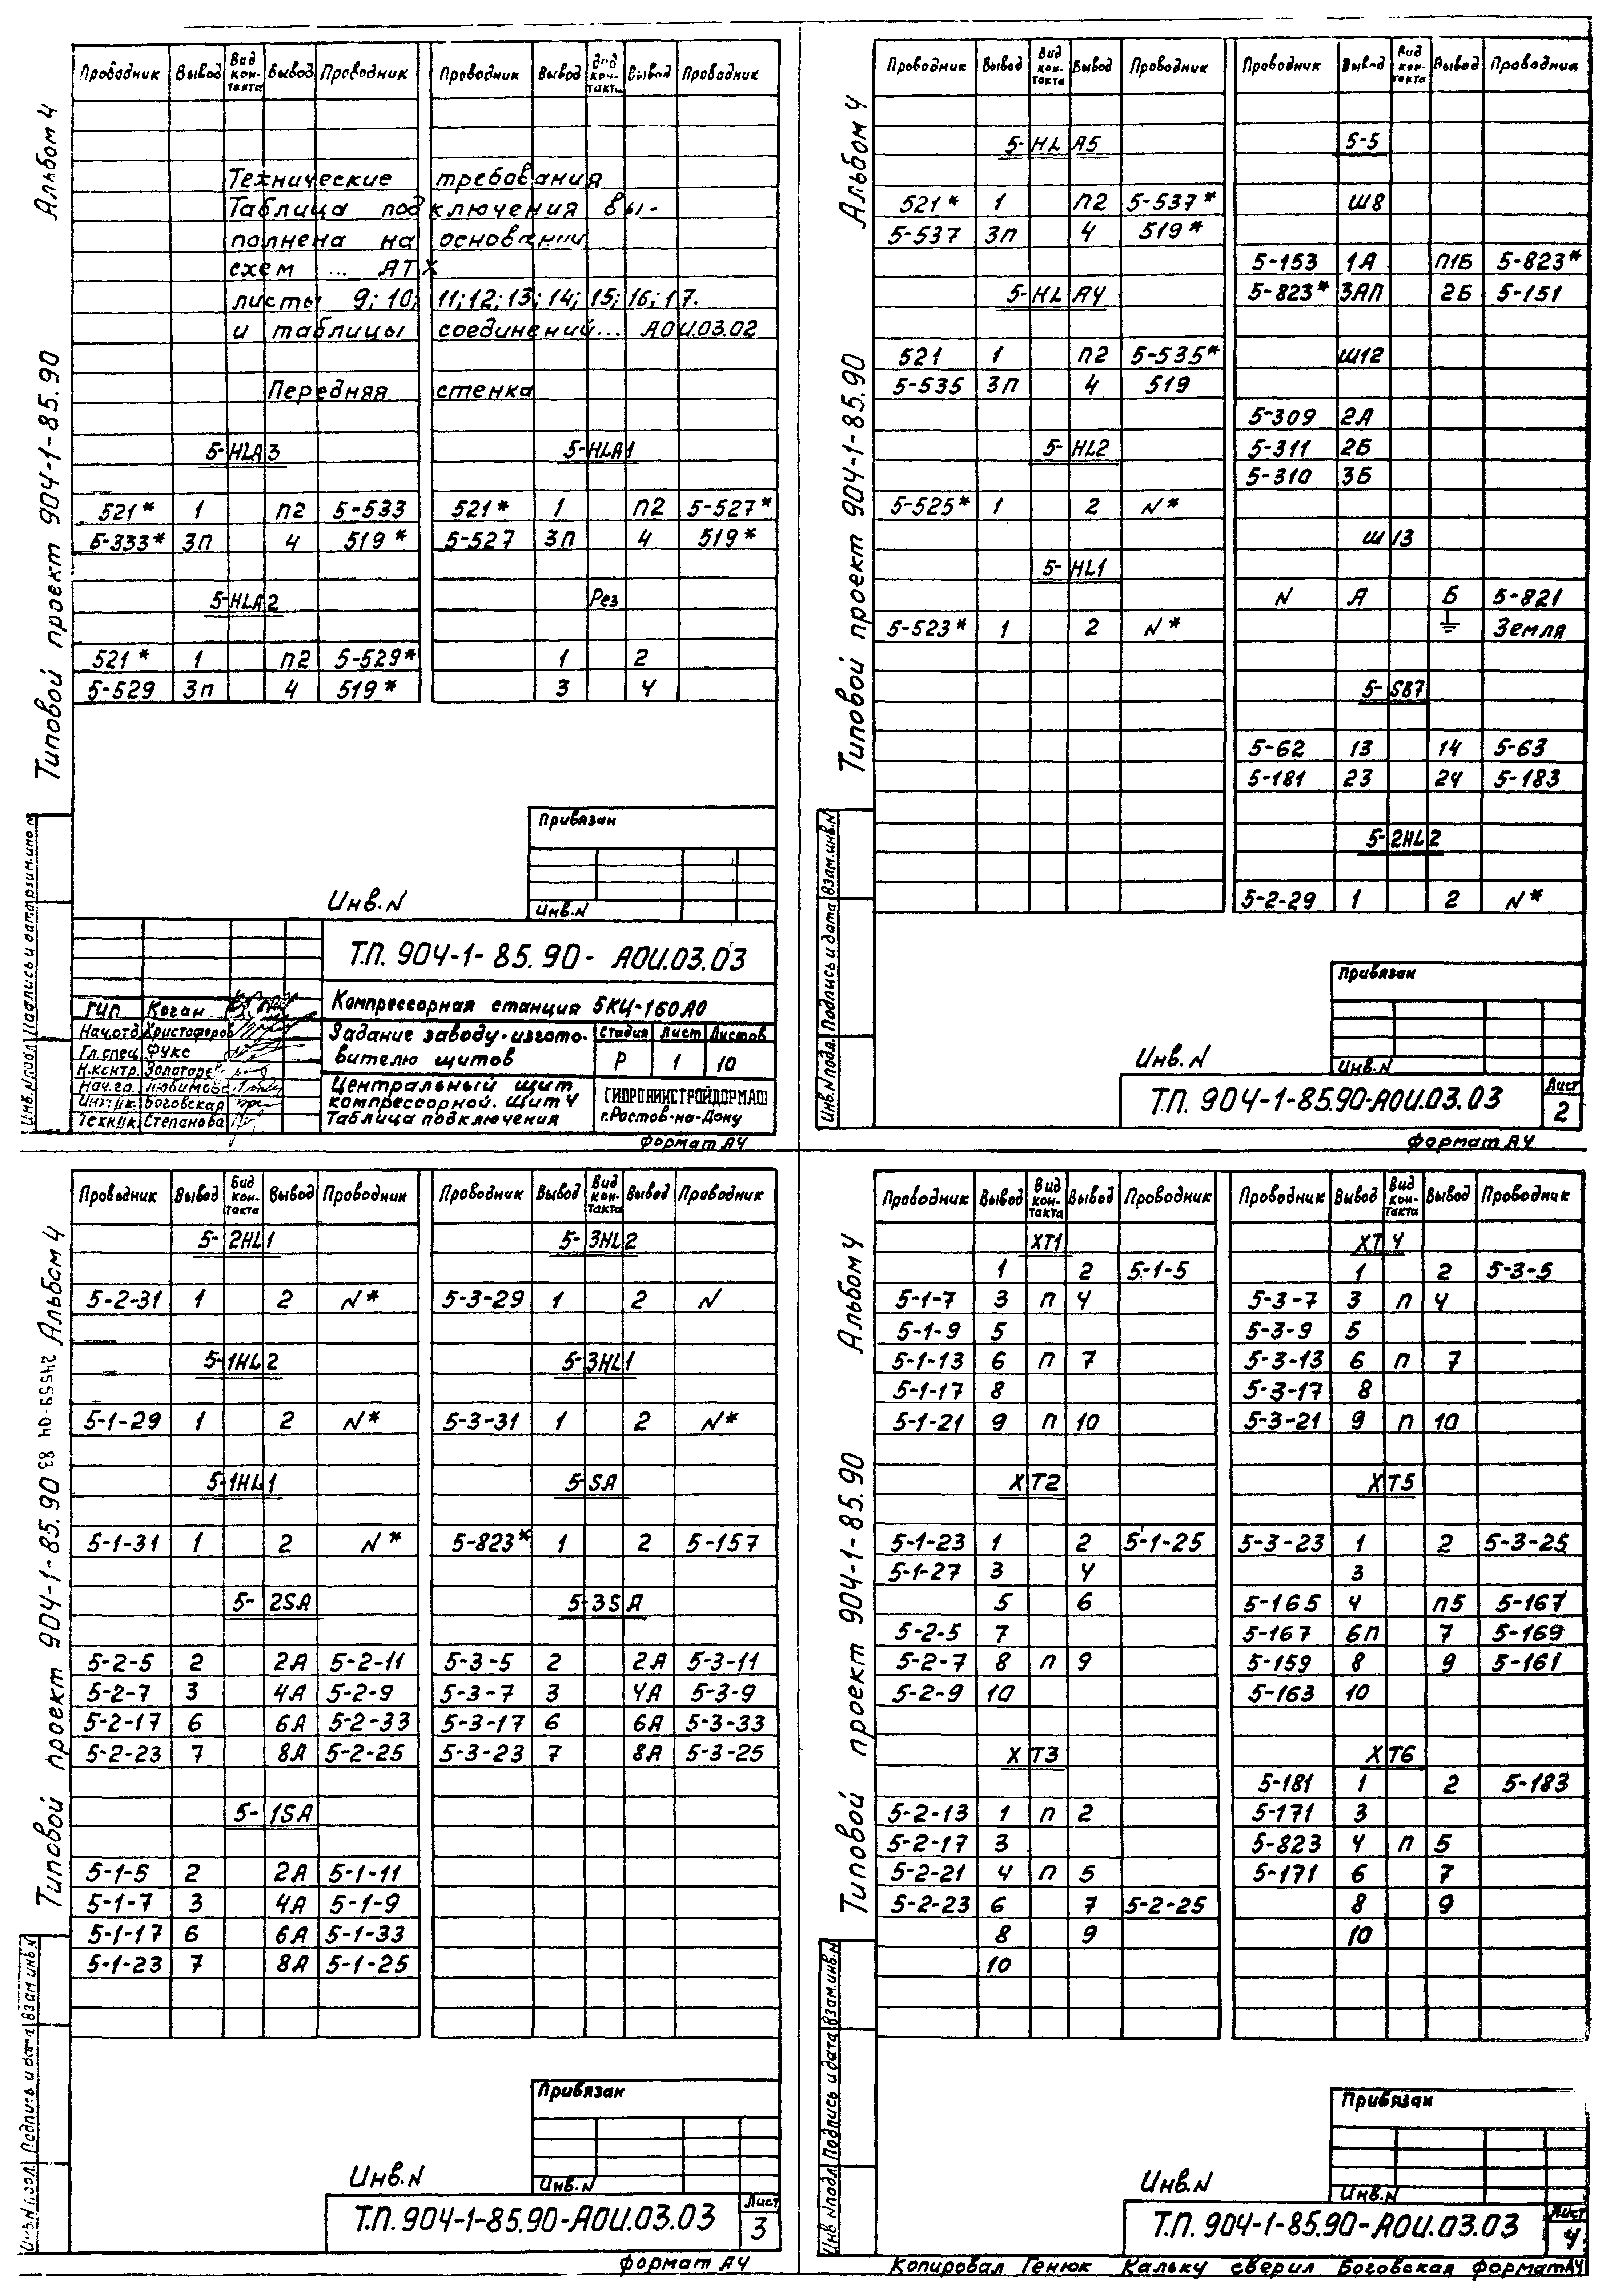 Альбом 4
Типовой проект 904-1-85.90
Проводник Вывод Вид кон-такта Вывод Проводник Проводник Вывод Вид кон-такта Вывод Проводник
Технические требования
Таблица подключения вы-
полнена на основании
схем ... АТХ
листы 9; 10; 11; 12; 13; 14; 15; 16; 17.
и таблицы соединений... АОИ.03.02
Передняя стенка
5-HLA3 5-HLA1
521* 1 п2 5-533 521* 1 п2 5-527*
5-333* 3п 4 519* 5-527 3п 4 519*
5-HLA2 Рез
521* 1 п2 5-529* 1 2
5-529 3п 4 519* 3 4
Привязан
Инв.N
Инв.N
Т.П. 904-1-85.90- АОИ.03.03
ГИП Коган
Компрессорная станция 5КЦ-160А0
Нач.отд Христофоров
Гл.спец. Фукс
Н.контр. Золотарев
Нач.гр. Любимова
Инж.IIк. Боговская
Техн.IIк. Степанова
Задание заводу-изгото-
вителю щитов
Стадия Лист Листов
Р 1 10
Центральный щит
компрессорной. Щит 4
Таблица подключения
ГИПРОНИИСТРОЙДОРМАШ
г.Ростов-на-Дону
Формат А4
Инв.N подл. Подпись и дата Взам.инв.N
Альбом 4
Типовой проект 904-1-85.90
Проводник Вывод Вид кон-такта Вывод Проводник Проводник Вывод Вид кон-такта Вывод Проводник
5-HLA5 5-5
521* 1 п2 5-537* Ш8
5-537 3п 4 519*
5-153 1А п1Б 5-823*
5-HLA4 5-823* 3Ап 2Б 5-151
521 1 п2 5-535* Ш12
5-535 3п 4 519
5-309 2А
5-HL2 5-311 2Б
5-310 3Б
5-525* 1 2 N*
Ш13
5-HL1
N А Б 5-821
5-523* 1 2 N* Земля
5-SB7
5-62 13 14 5-63
5-181 23 24 5-183
5-2HL2
5-2-29 1 2 N*
Привязан
Инв.N
Инв.N
Т.П. 904-1-85.90-АОИ.03.03
Лист
2
Формат А4
Инв.N подл. Подпись и дата Взам.инв.N
Альбом 4
24559-04 83
Типовой проект 904-1-85.90
Проводник Вывод Вид кон-такта Вывод Проводник Проводник Вывод Вид кон-такта Вывод Проводник
5-2HL1 5-3HL2
5-2-31 1 2 N* 5-3-29 1 2 N
5-1HL2 5-3HL1
5-1-29 1 2 N* 5-3-31 1 2 N*
5-1HL1 5-SA
5-1-31 1 2 N* 5-823* 1 2 5-157
5-2SA 5-3SA
5-2-5 2 2А 5-2-11 5-3-5 2 2А 5-3-11
5-2-7 3 4А 5-2-9 5-3-7 3 4А 5-3-9
5-2-17 6 6А 5-2-33 5-3-17 6 6А 5-3-33
5-2-23 7 8А 5-2-25 5-3-23 7 8А 5-3-25
5-1SA
5-1-5 2 2А 5-1-11
5-1-7 3 4А 5-1-9
5-1-17 6 6А 5-1-33
5-1-23 7 8А 5-1-25
Привязан
Инв.N
Инв.N
Т.П. 904-1-85.90-АОИ.03.03
Лист
3
Формат А4
Инв.N подл. Подпись и дата Взам.инв.N
Альбом 4
Типовой проект 904-1-85.90
Проводник Вывод Вид кон-такта Вывод Проводник Проводник Вывод Вид кон-такта Вывод Проводник
XT1 XT4
1 2 5-1-5 1 2 5-3-5
5-1-7 3 п 4 5-3-7 3 п 4
5-1-9 5 5-3-9 5
5-1-13 6 п 7 5-3-13 6 п 7
5-1-17 8 5-3-17 8
5-1-21 9 п 10 5-3-21 9 п 10
XT2 XT5
5-1-23 1 2 5-1-25 5-3-23 1 2 5-3-25
5-1-27 3 4 3
5 6 5-165 4 п5 5-167
5-2-5 7 5-167 6п 7 5-169
5-2-7 8 п 9 5-159 8 9 5-161
5-2-9 10 5-163 10
XT3 XT6
5-181 1 2 5-183
5-2-13 1 п 2 5-171 3
5-2-17 3 5-823 4 п 5
5-2-21 4 п 5 5-171 6 7
5-2-23 6 7 5-2-25 8 9
8 9 10
10
Привязан
Инв.N
Инв.N
Т.П. 904-1-85.90-АОИ.03.03
Лист
4
Инв.N подл. Подпись и дата Взам.инв.N
Копировал Генюк Кальку сверил Боговская Формат А4